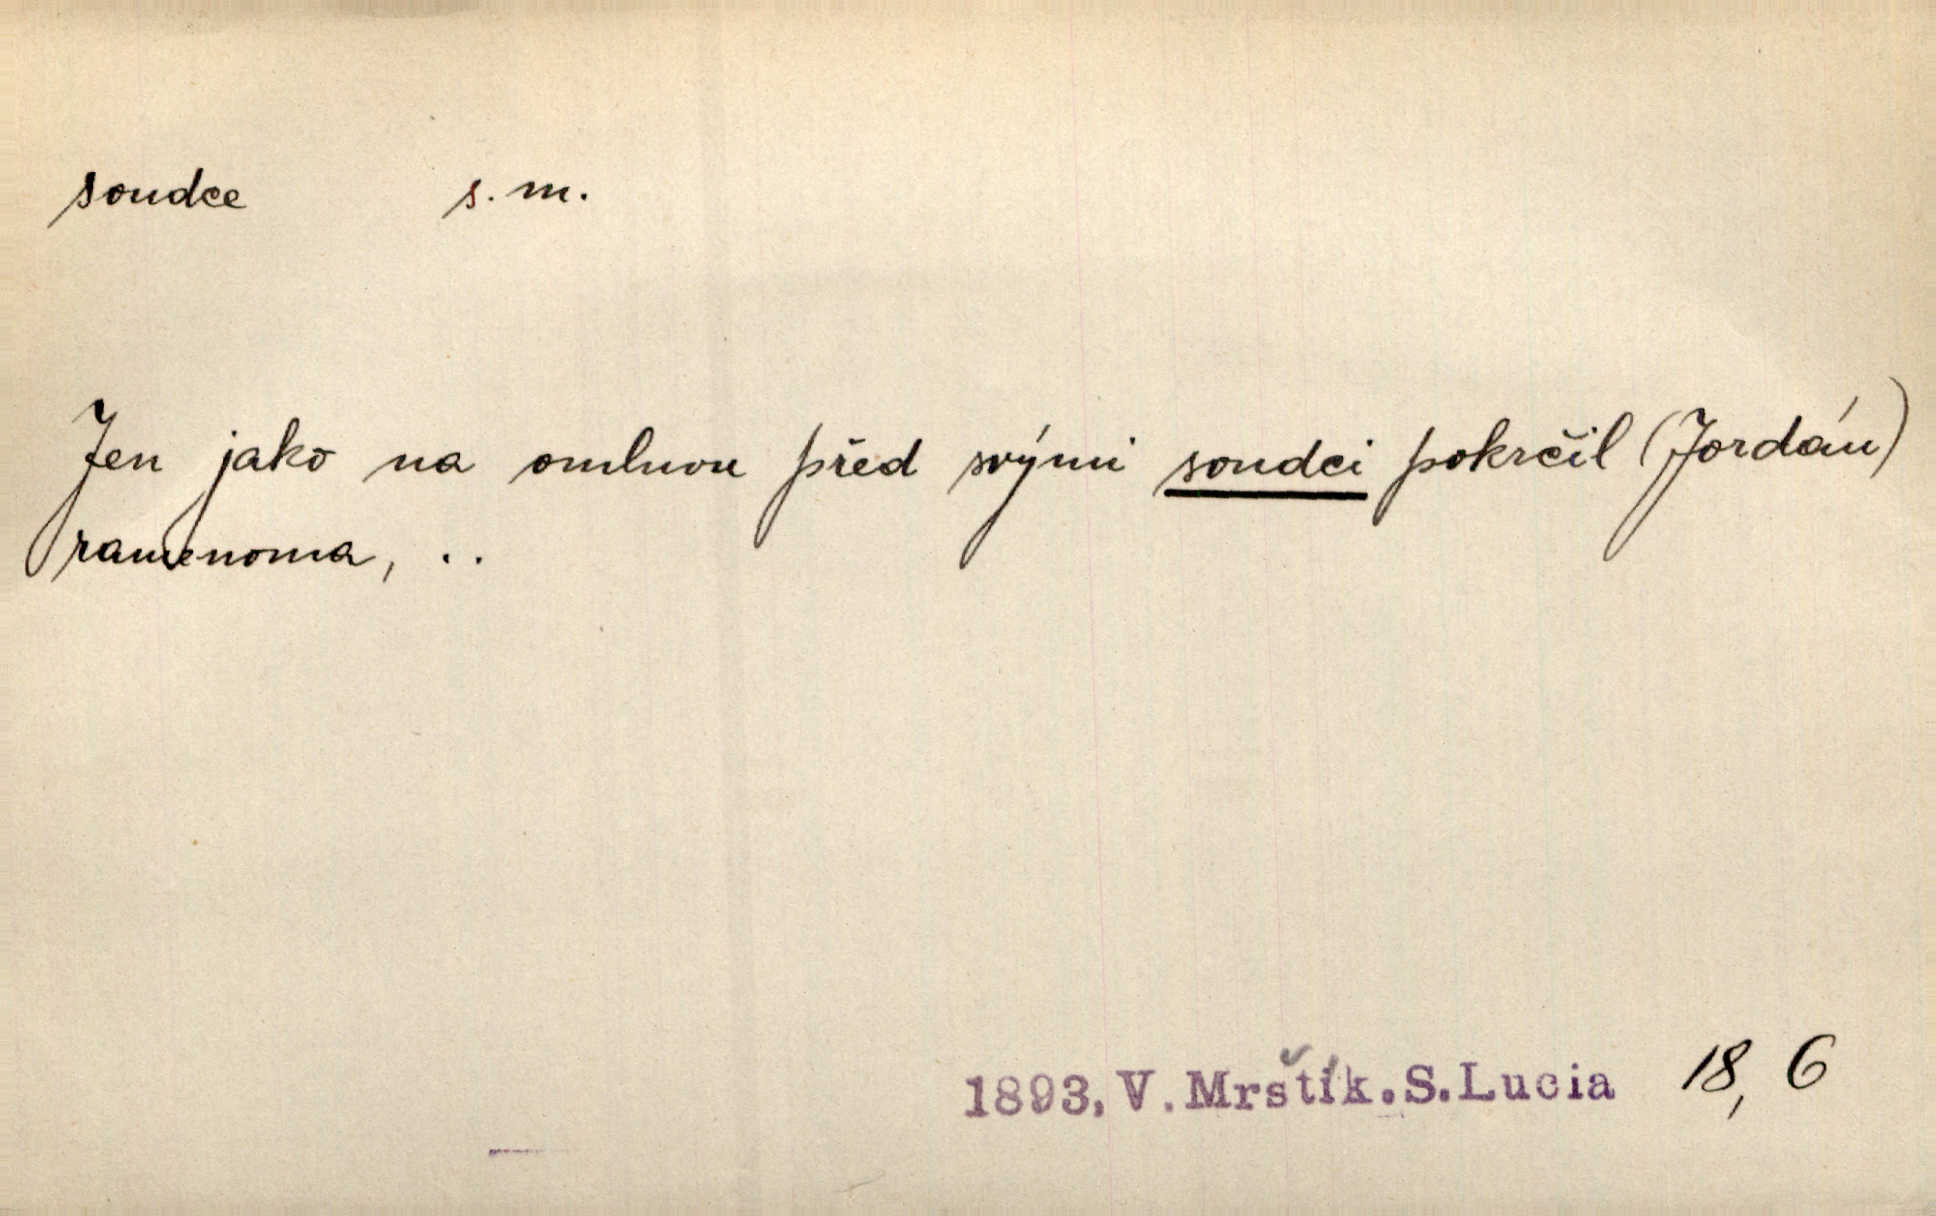 soudce s. m.
Jen jako na omluvu před svými soudci pokrčil (Jordán)
ramenoma, ..
1893, V. Mrštík. S. Lucia 18, 6